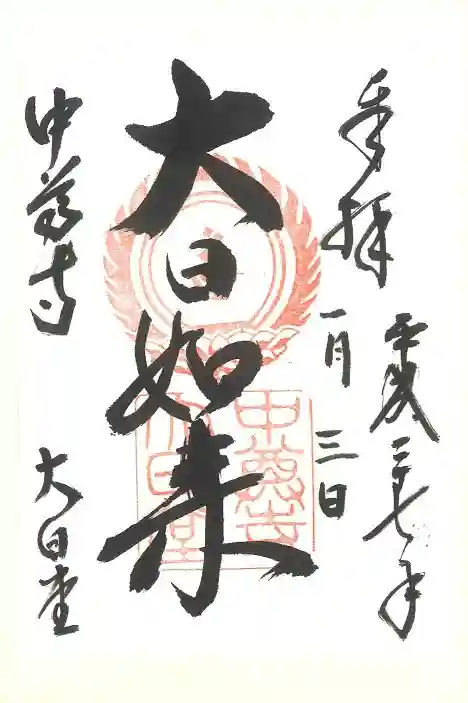 奉拝
平成二十七年
一月三日
大日如来
中尊寺
大日堂
中尊寺
大日堂